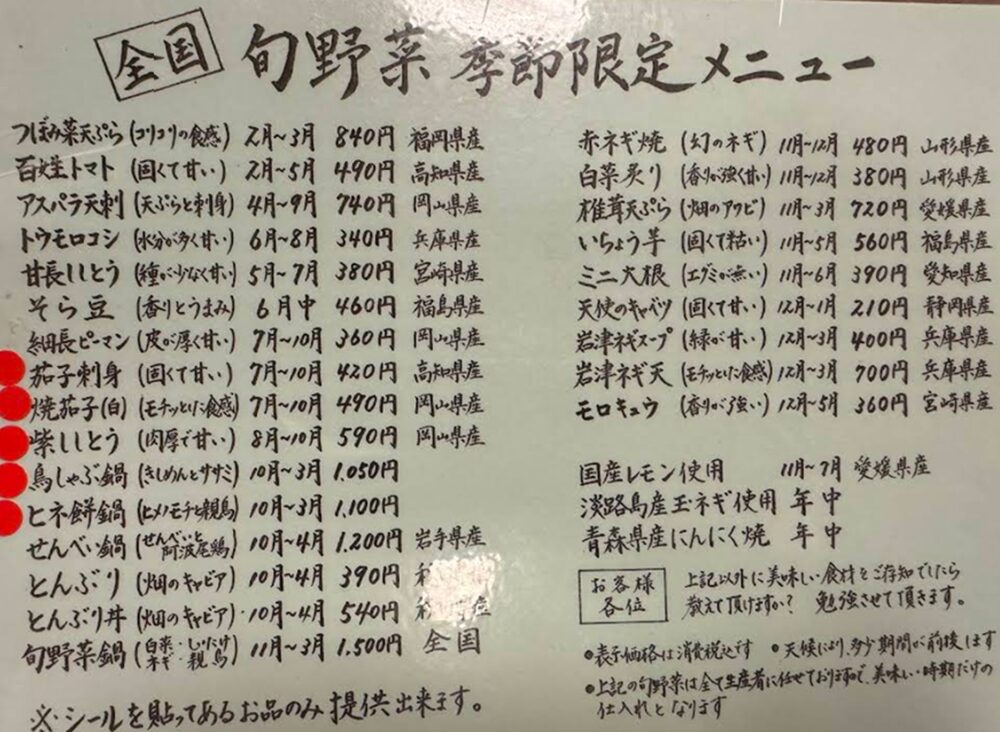 全国 旬野菜 季節限定メニュー
つぼみ菜天ぷら (コリコリの食感) 2月~3月 840円 福岡県産
百姓トマト (固くて甘い) 2月~5月 490円 高知県産
アスパラ天刺 (天ぷらと刺身) 4月~9月 740円 岡山県産
トウモロコシ (水分が多く甘い) 6月~8月 340円 兵庫県産
甘長ししとう (種が少なく甘い) 5月~7月 380円 宮崎県産
そら豆 (香りとうまみ) 6月中 460円 福島県産
細長ピーマン (皮が厚く甘い) 7月~10月 360円 岡山県産
茄子刺身 (固くて甘い) 7月~10月 420円 高知県産
焼茄子(白) (モチッとした食感) 7月~10月 490円 岡山県産
紫ししとう (肉厚で甘い) 8月~10月 590円 岡山県産
鳥しゃぶ鍋 (きしめんとササミ) 10月~3月 1.050円
ヒネ餅鍋 (ヒメノモチと親鳥) 10月~3月 1.100円
せんべい鍋 (せんべいと阿波尾鶏) 10月~4月 1.200円 岩手県産
とんぶり (畑のキャビア) 10月~4月 390円
とんぶり丼 (畑のキャビア) 10月~4月 540円
旬野菜鍋 (白菜・しいたけ ネギ・親鳥) 11月~3月 1.500円 全国
※シールを貼ってあるお品のみ提供出来ます。
赤ネギ焼 (幻のネギ) 11月~12月 480円 山形県産
白菜炙り (香りが強く甘い) 11月~12月 380円 山形県産
椎茸天ぷら (畑のアワビ) 11月~3月 720円 愛媛県産
いちょう芋 (固くて粘い) 11月~5月 560円 福島県産
ミニ大根 (エグミが無い) 11月~6月 390円 愛知県産
天使のキャベツ (固くて甘い) 12月~1月 210円 静岡県産
岩津ネギスープ (緑が甘い) 12月~3月 400円 兵庫県産
岩津ネギ天 (モチッとした食感) 12月~3月 700円 兵庫県産
モロキュウ (香りが強い) 12月~5月 360円 宮崎県産
国産レモン使用 11月~7月 愛媛県産
淡路島産玉ネギ使用 年中
青森県産にんにく焼 年中
お客様各位 上記以外に美味しい食材をご存知でしたら
教えて頂けますか? 勉強させて頂きます。
●表示価格は消費税込です ●天候により、多少期間が前後します
●上記の旬野菜は全て生産者に任せておりますので、美味しい時期だけの
仕入れとなります